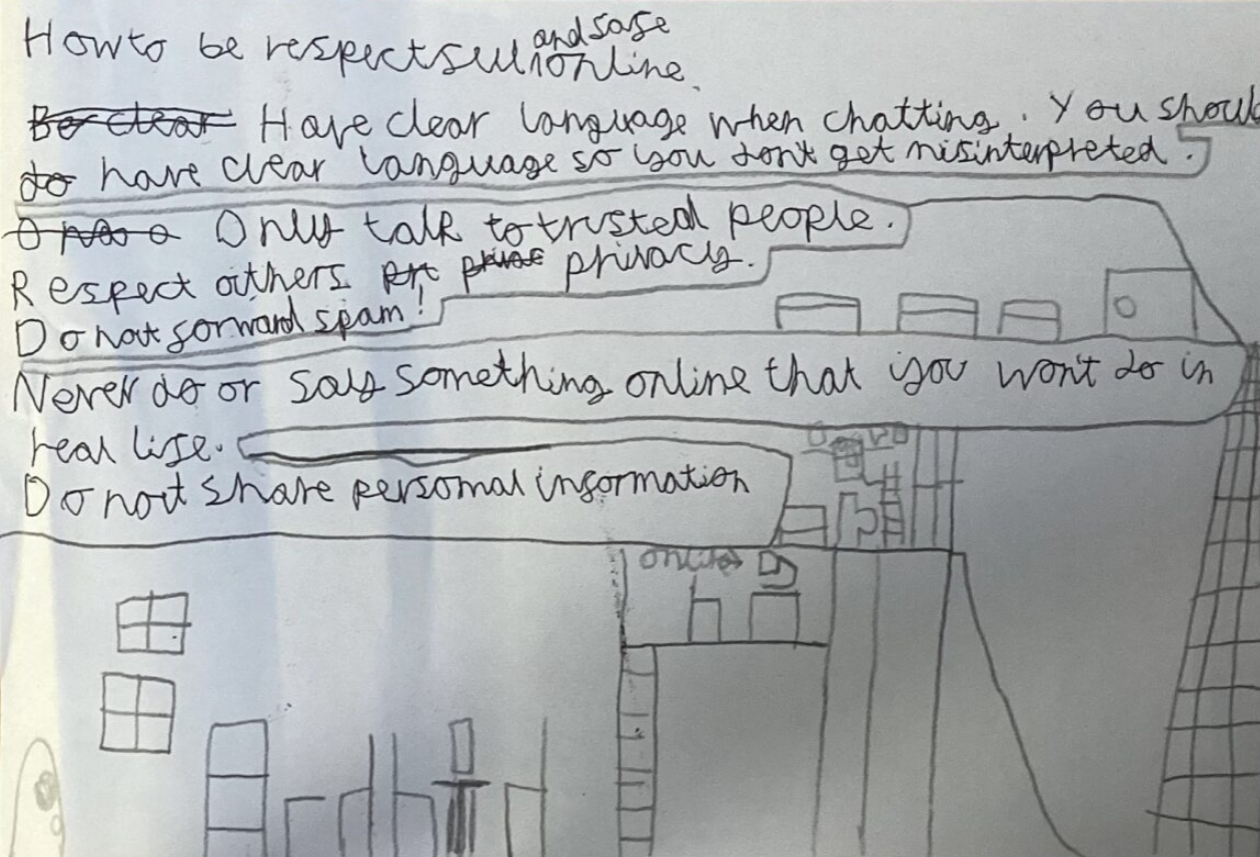 How to be respectful and safe online.
Have clear language when chatting. You should
have clear language so you dont get misinterpreted.
Only talk to trusted people.
Respect others privacy.
Do not forward spam!
Never do or say something online that you won't do in
real life.
Do not share personal information
online